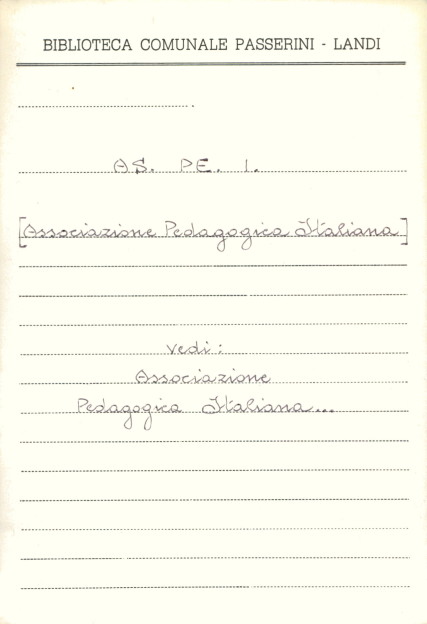 BIBLIOTECA COMUNALE PASSERINI - LANDI
AS. PE. I.
[Associazione Pedagogica Italiana]
vedi:
Associazione
Pedagogica Italiana...